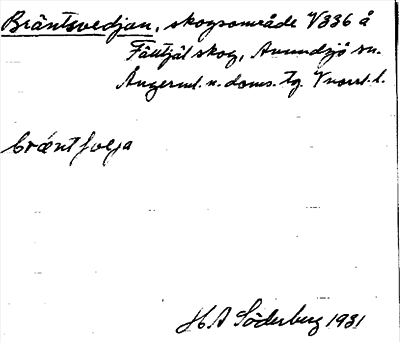 Bräntsvedjan, skogsområde V336 å
Fälltjäl skog, Anundsjö sn.
Ångerml. n. doms. tg. Vnorrl. l.
H. A Söderberg 1931